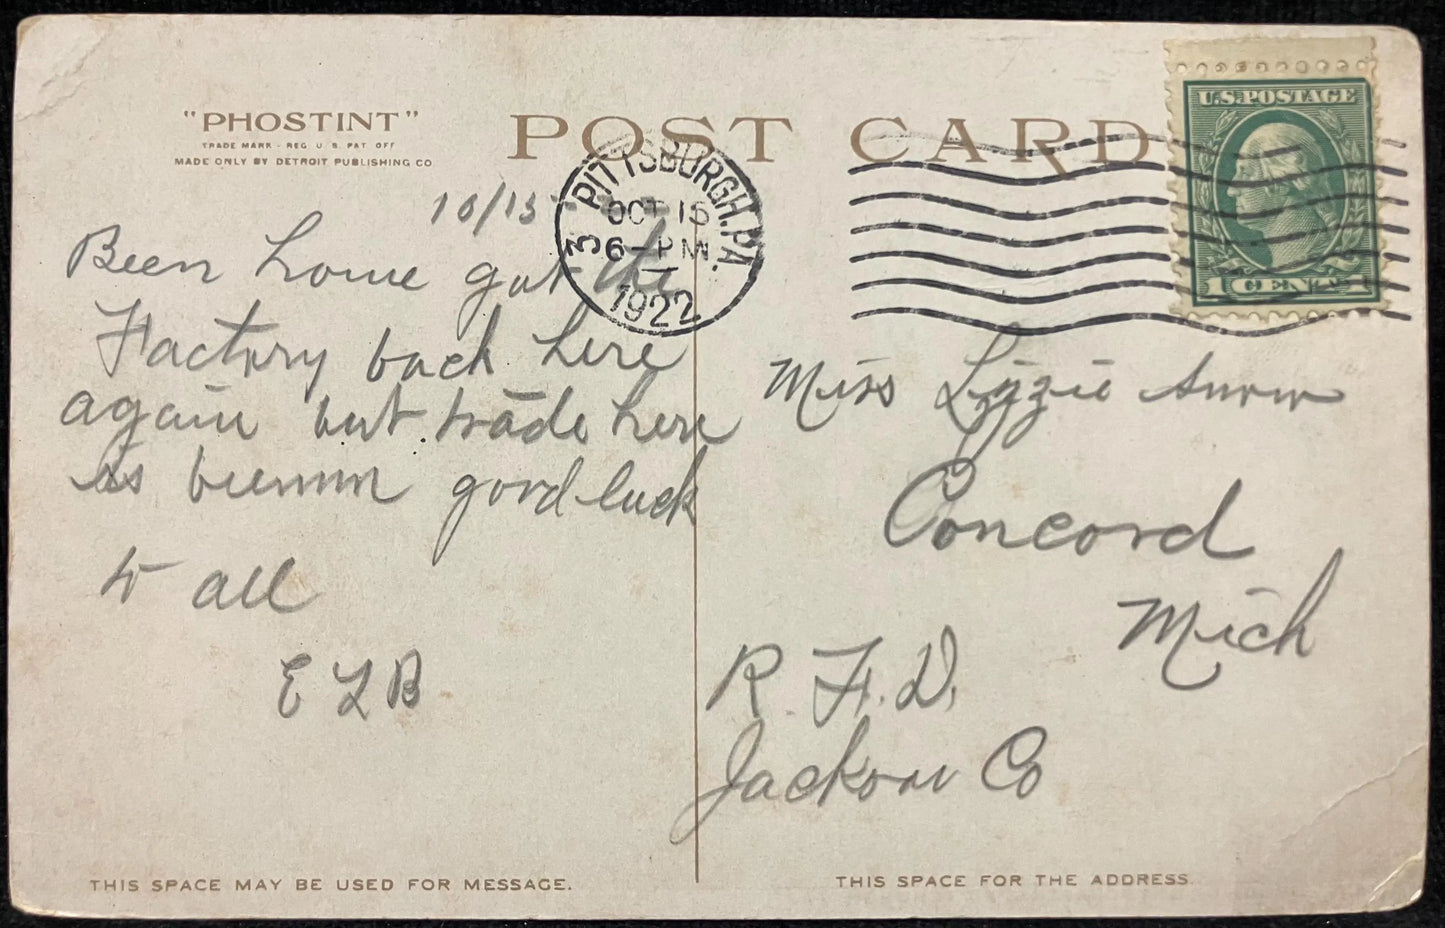 "PHOSTINT"
TRADE MARK - REG U. S. PAT OFF
MADE ONLY BY DETROIT PUBLISHING CO
POST CARD
U.S. POSTAGE
1 CENT 1
3 PITTSBURGH, PA.
OCT 15
6 - PM
1922
10/15
Been home got the
Factory back here
again but trade here
is bummm good luck
to all
E L B
Miss Lizzie Snow
Concord
Mich
R. F. D.
Jackson Co
THIS SPACE MAY BE USED FOR MESSAGE.
THIS SPACE FOR THE ADDRESS.